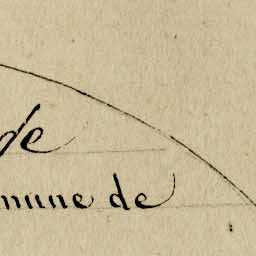 de
mune de